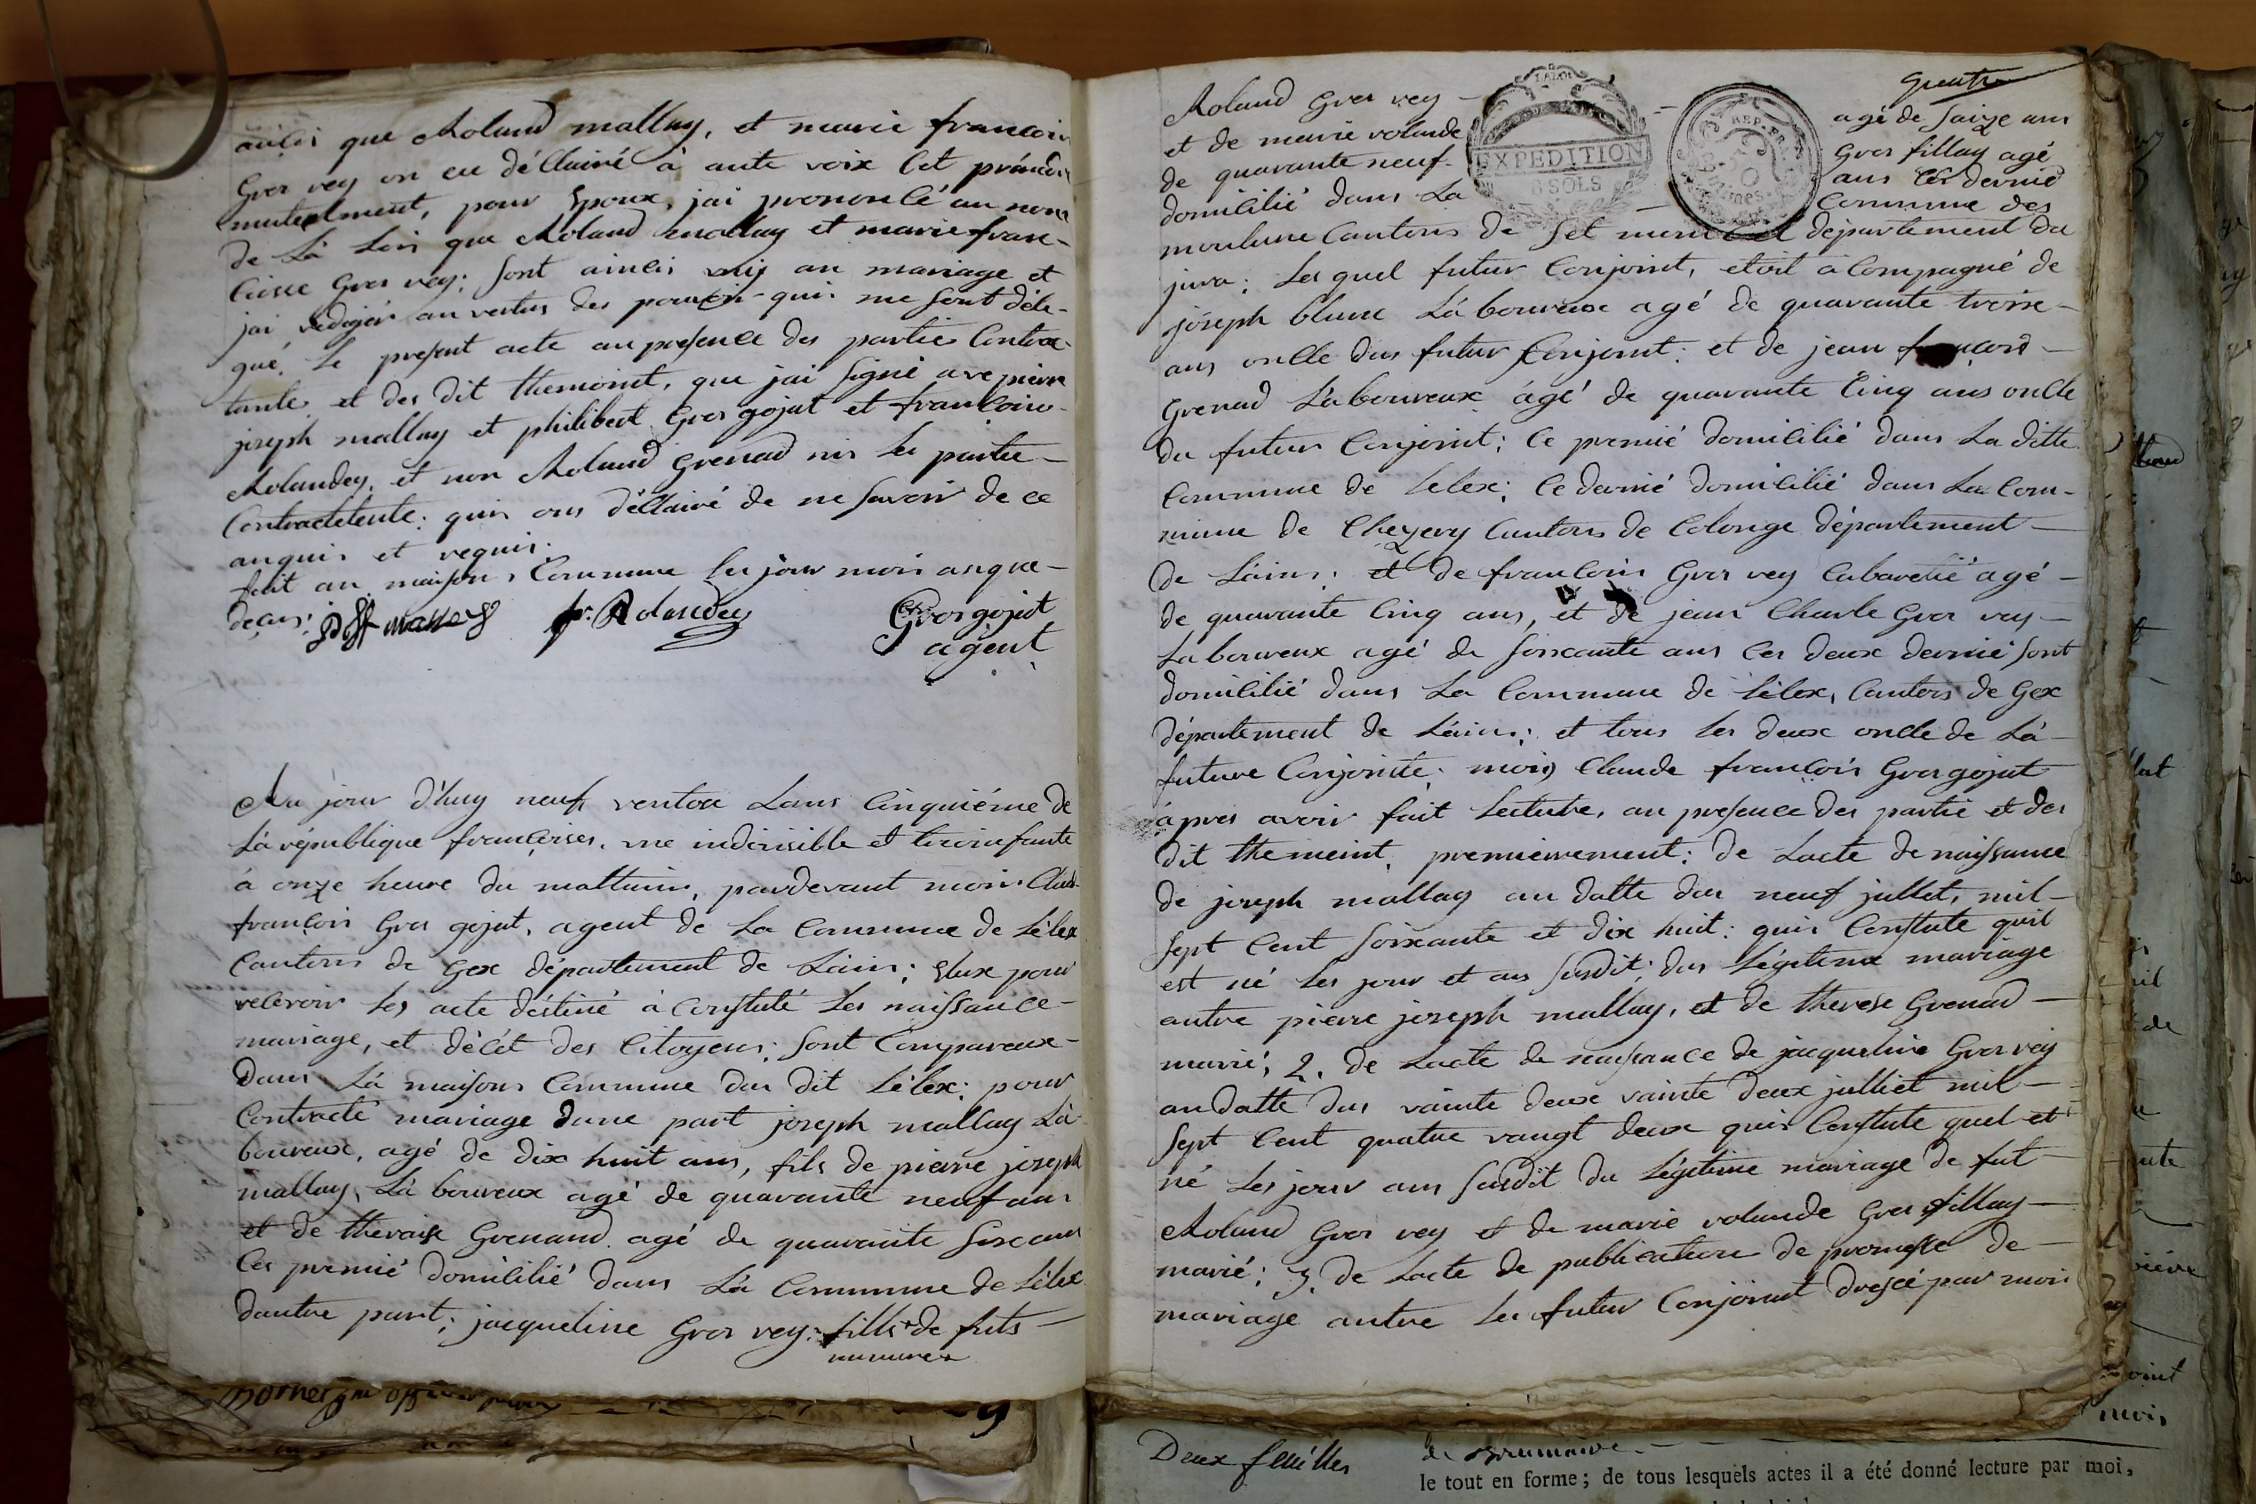 ainsi que Roland mallay, et marie francois
Gros rey on eu déllairé à aute voix Cet prendre
mutuelment, pour Epoux, jai prononcé au nom
de Là Loix que Roland mallay et marie fran-
Coisse Gros rey; sont ainsis unis an mariage et
jai redigér an vertus des pouvoir quis me sont déle-
gué. Le present acte an presence des parties Contrac-
tante et des dit themoint, que jai signé ave pierre
joseph mallay et philibert Gros gojat et francois-
Rolandey, et non Roland Grenad nis les partie-
Contractetente; quis ons déllairé de ne savoir de ce
anquis et requis.
fait an maison Commune les jour mois anque-
deçus;
Rolandey
Gros gojat
agent
Au jour d'huy neuf ventose Lans Cinquiéme de
Là république francoises. une indivisible et
à onze heure du mattuin, pardevant mois Clau-
francois Gros gojat, agent de La Commune de Lélex
Cantons de Gex département de Lain; Elux pour
recevoir les acte déstiné à Constuté Les naissance-
mariage, et décét des Citoyens; sont Compareux-
dans Là maison Commune du dit Lélex; pour
Contracté mariage dune part joseph mallay Là
boureux, agé de dix huit ans, fils de pierre joseph
mallay, Là boureux agé de quarante neuf ans
et de theraise Grenand agé de quarante six ans
Ces premié domicilié dans Là Commune de Lélex
dautre part; jacqueline Gros rey; fille de futs
Deux feuilles
de Brumaire
le tout en forme; de tous lesquels actes il a été donné lecture par moi,
Quatre
Roland Gros rey
agé de saize ans
et de marie rolande
Gros fillay agé
de quarante neuf-
ans Ces dernié
domicilié dans La
Commune des
EXPEDITION
SOLS
REP. FR.
moulune Cantons de Set moncel département du
jura; Les quel futur Conjoint, etoit à Compagné de
joseph blanc Là boureux agé de quarante troise-
ans onCle dus futur Conjoint; et de jean francois-
Grenad Là boureux ágé de quarante Cinq ans onCle
du futur Conjoint; Ce premié domicilié dans La ditte
Commune de Lelex; Ce dernié domicilié dans La Com-
mune de Chezery Cantons de Colonge département-
de Lain; et de francois Gros rey Cabaretié agé-
de quarante Cinq ans, et de jean Charle Gros rey-
La boureux agé de soixante ans Ces deux dernié sont
domicilié dans La Commune de Lélex, Cantons de Gex
département de Lain; et tous les deux onCle de Là-
future Conjointe; mois Claude francois Gros gojat
àpres avoir fait Lecture, an presence des partie et des
dit themeint, premierrement; de Lacte de naissance
de joseph mallay an datte dus neuf jullet, mil-
sept Cent soixante et dix huit; quis Constute quil
est né Les jour et ans susdit; dus Légitime mariage
antre pierre joseph mallay, et de therese Grenad-
marié; 2. de Lacte de naissance de jacqueline Gros rey
an datte dus vainte deux vainte deux julliet mil-
sept Cent quatre vangt deux quis Constute quel et
né Les jour ans susdit du Légitime mariage de fut-
Roland Gros rey et de marie rolande Gros fillay-
marié; 3. de Lacte de publication de promesse de-
mariage antre Les futur Conjoint dressé par mois